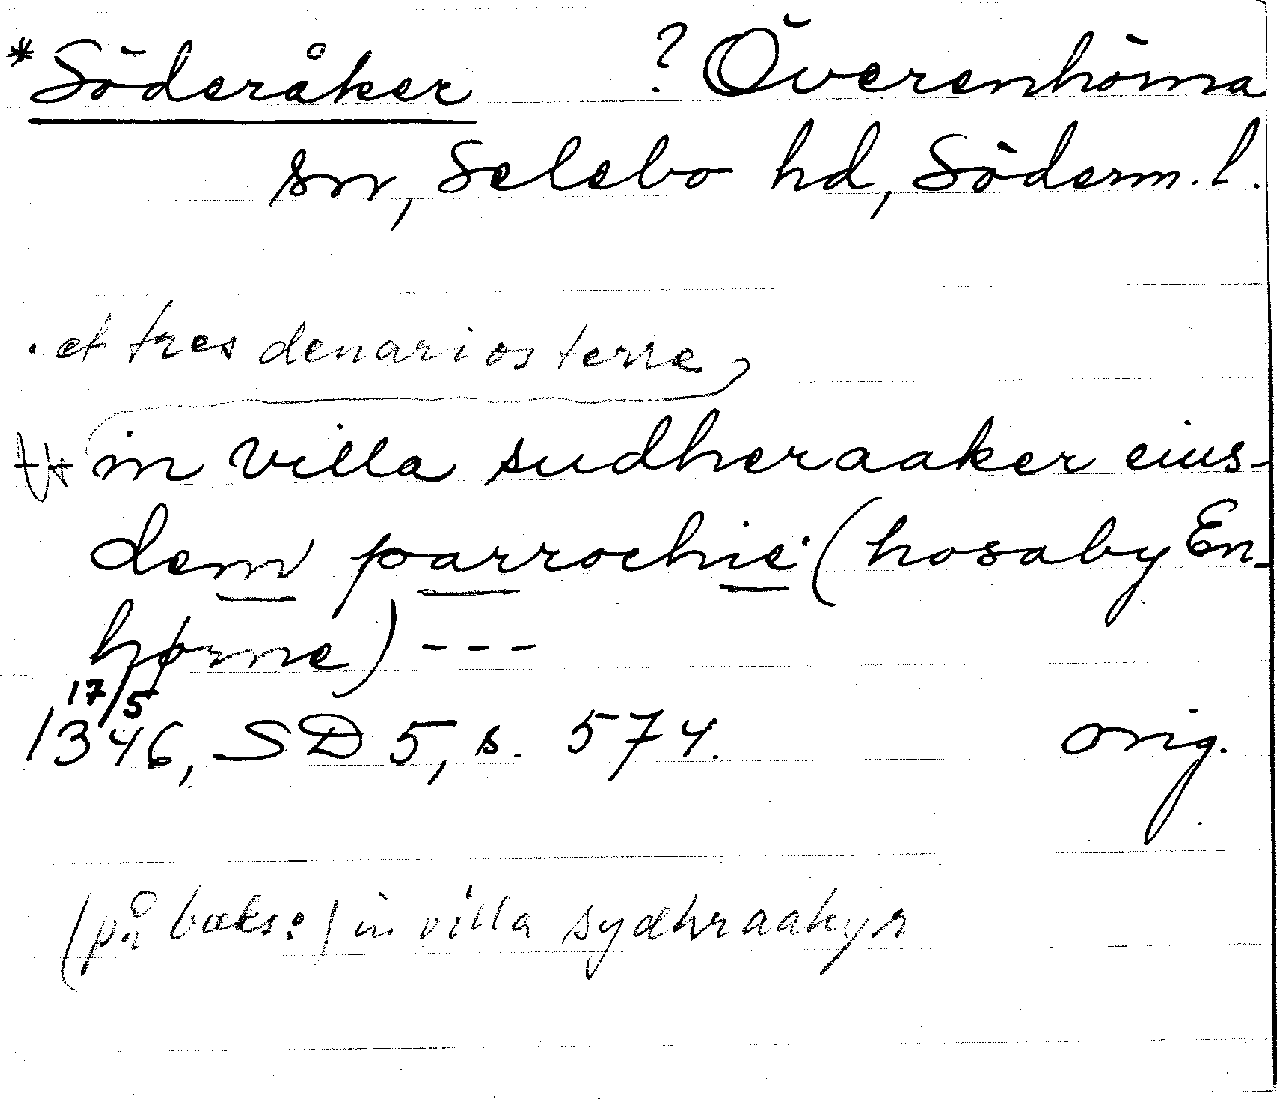 *Söderåker ? Överenhörna
sn, Selebo hd, Söderm. l.
. et tres denarios terre
in villa sudheraaker eius-
dem parrochie (hosaby En-
hørne) ---
17/5
1346, SD 5, s. 574. orig.
(på baks:) in villa sydhraakyr